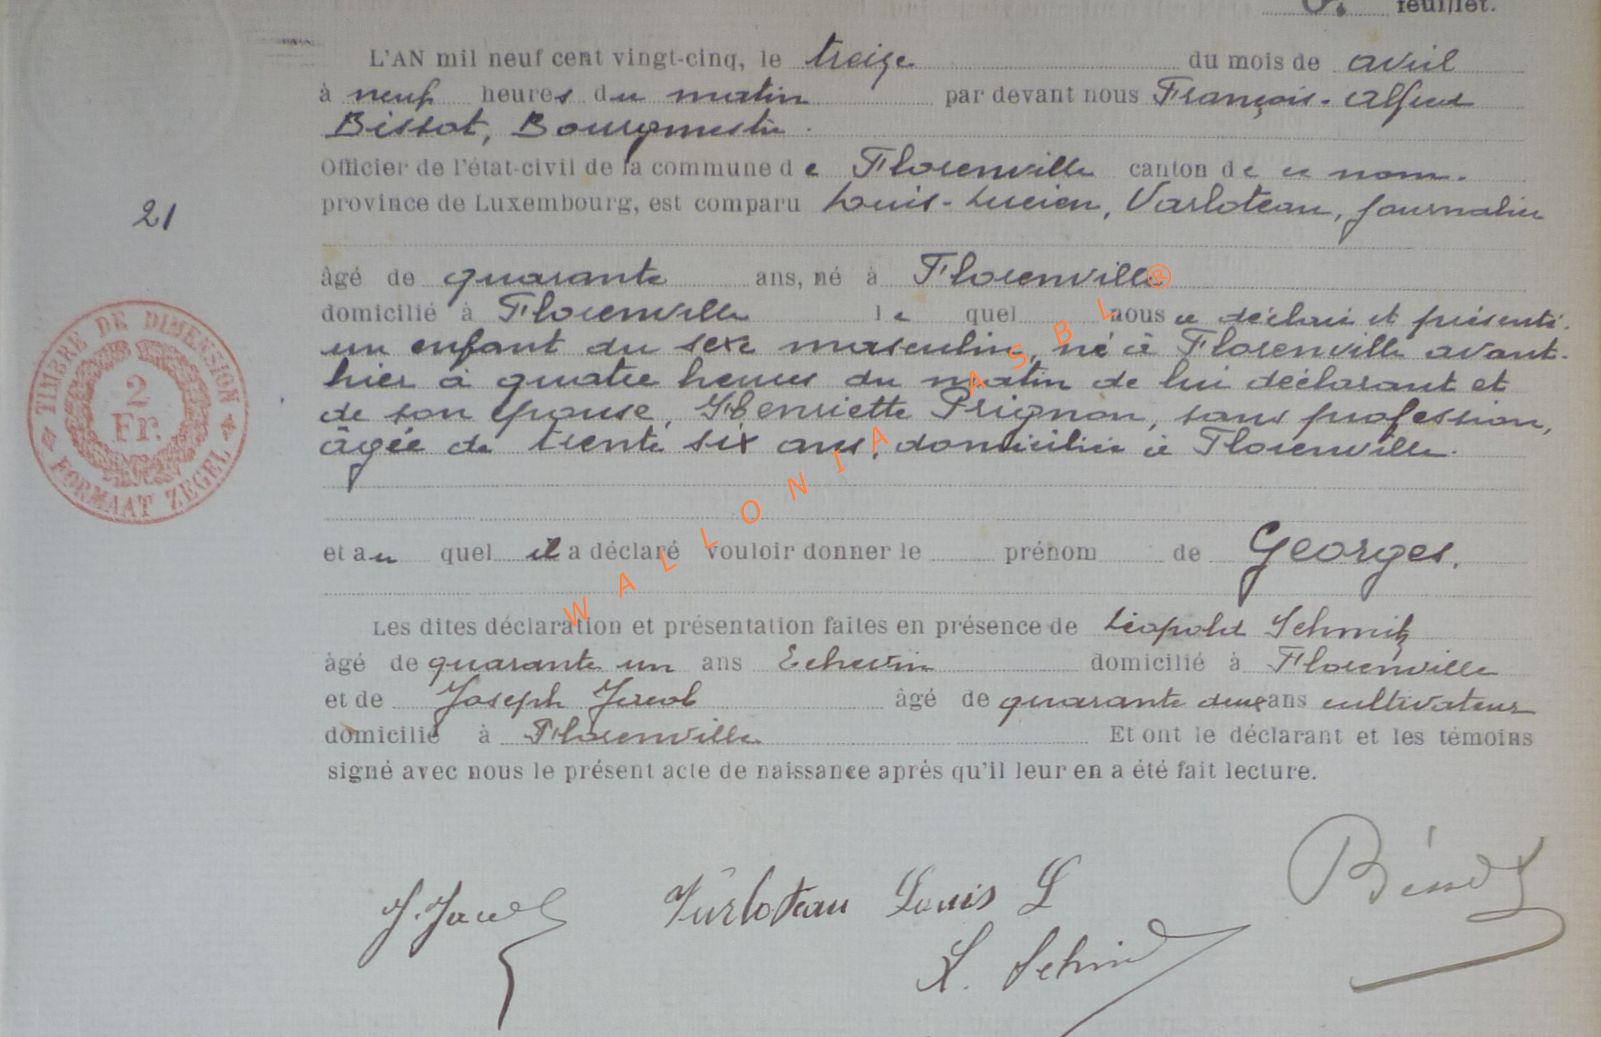 feuillet.
L'AN mil neuf cent vingt-cinq, le treize du mois de avril
à neuf heures du matin par devant nous François-Alfred
Bissot, Bourgmestre.
Officier de l'état-civil de la commune de Florenville canton de ce nom.
province de Luxembourg, est comparu Louis-Lucien, Varloteau, journalier
21
âgé de quarante ans, né à Florenville
domicilié à Florenville le quel nous a déclaré et présenté
un enfant du sexe masculin, né à Florenville avant-
hier à quatre heures du matin de lui déclarant et
de son épouse, Henriette Prignon, sans profession,
âgée de trente six ans, domiciliée à Florenville.
TIMBRE DE DIMENSION
2
Fr.
FORMAAT ZEGEL
et au quel il a déclaré vouloir donner le prénom de Georges.
Les dites déclaration et présentation faites en présence de Léopold Schmitz
âgé de quarante un ans Echevin domicilié à Florenville
et de Joseph Jacob âgé de quarante deux ans cultivateur
domicilié à Florenville Et ont le déclarant et les témoins
signé avec nous le présent acte de naissance après qu'il leur en a été fait lecture.
WALLONIA ASBL®
J. Jacob Varloteau Louis L Bissot
L. Schmitz